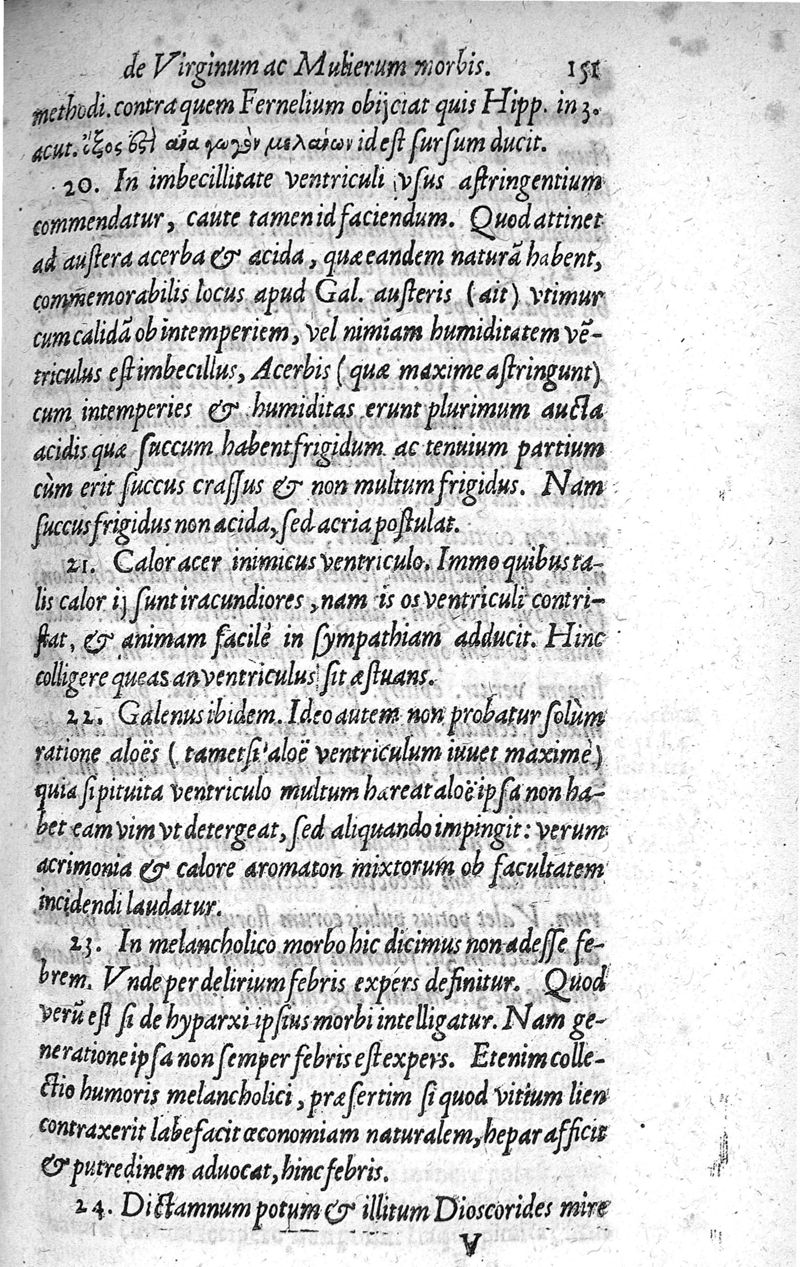 de Virginum ac Mulierum morbis. 151
methodi. contra quem Fernelium obijciat quis Hipp. in 3.
acut. ὄξος ἐστὶ ἀναγωγὸν μελαίνων id est sursum ducit.
20. In imbecillitate ventriculi vsus astringentium
commendatur, caute tamen id faciendum. Quod attinet
ad austera acerba & acida, quæ eandem naturā habent,
commemorabilis locus apud Gal. austeris (ait) vtimur
cum calidā ob intemperiem, vel nimiam humiditatem vē-
triculus est imbecillus, Acerbis (quæ maxime astringunt)
cum intemperies & humiditas erunt plurimum aucta
acidis quæ succum habent frigidum ac tenuium partium
cùm erit succus crassus & non multum frigidus. Nam
succus frigidus non acida, sed acria postulat.
21. Calor acer inimicus ventriculo. Immo quibus ta-
lis calor ij sunt iracundiores, nam is os ventriculi contri-
stat, & animam facilè in sympathiam adducit. Hinc
colligere queas an ventriculus sit æstuans.
22. Galenus ibidem. Ideo autem non probatur solùm
ratione aloës (tametsi aloë ventriculum iuuet maximè)
quia si pituita ventriculo multum hæreat aloë ipsa non ha-
bet eam vim vt detergeat, sed aliquando impingit: verum
acrimonia & calore aromaton mixtorum ob facultatem
incidendi laudatur.
23. In melancholico morbo hic dicimus non adesse fe-
brem. Vnde per delirium febris expérs definitur. Quod
verū est si de hyparxi ipsius morbi intelligatur. Nam ge-
neratione ipsa non semper febris est expers. Etenim colle-
ctio humoris melancholici, præsertim si quod vitium lien
contraxerit labefacit œconomiam naturalem, hepar afficit
& putredinem aduocat, hinc febris.
24. Dictamnum potum & illitum Dioscorides mire
V